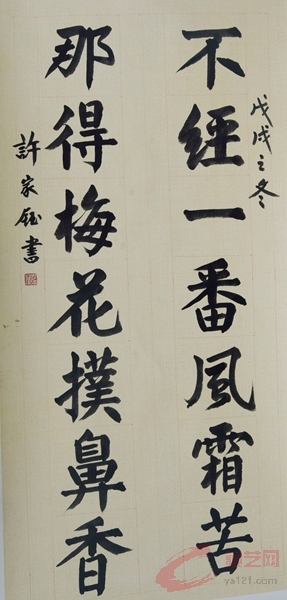 戊戌之冬
不經一番風霜苦
那得梅花撲鼻香
許家鈺書
ya121.com